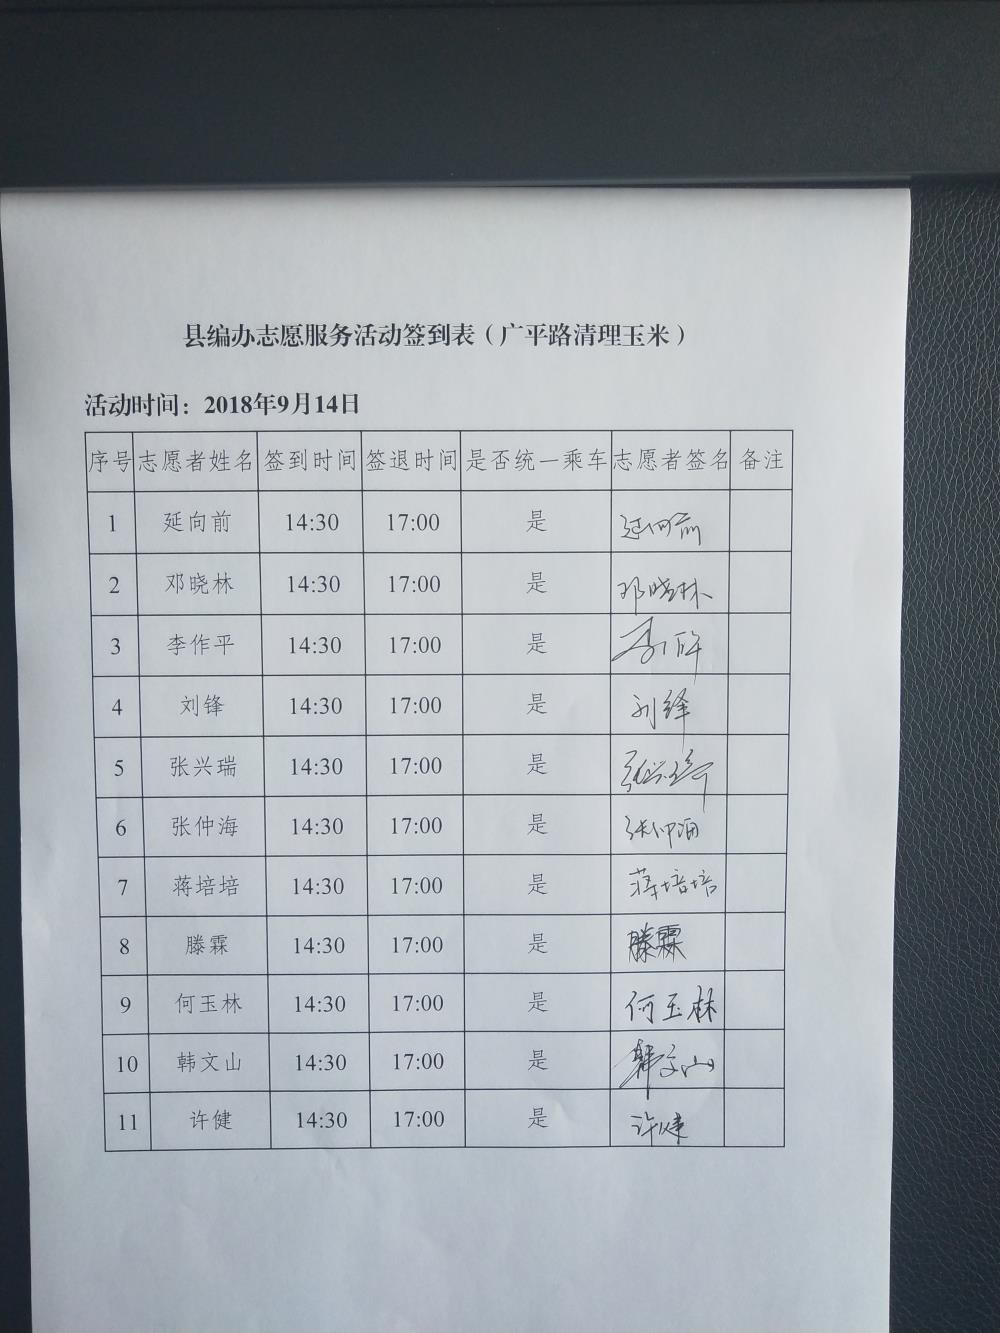 县编办志愿服务活动签到表（广平路清理玉米）
活动时间：2018年9月14日
序号 志愿者姓名 签到时间 签退时间 是否统一乘车 志愿者签名 备注
1 延向前 14:30 17:00 是 延向前
2 邓晓林 14:30 17:00 是 邓晓林
3 李作平 14:30 17:00 是 李作平
4 刘锋 14:30 17:00 是 刘锋
5 张兴瑞 14:30 17:00 是 张兴瑞
6 张仲海 14:30 17:00 是 张仲海
7 蒋培培 14:30 17:00 是 蒋培培
8 滕霖 14:30 17:00 是 滕霖
9 何玉林 14:30 17:00 是 何玉林
10 韩文山 14:30 17:00 是 韩文山
11 许健 14:30 17:00 是 许健